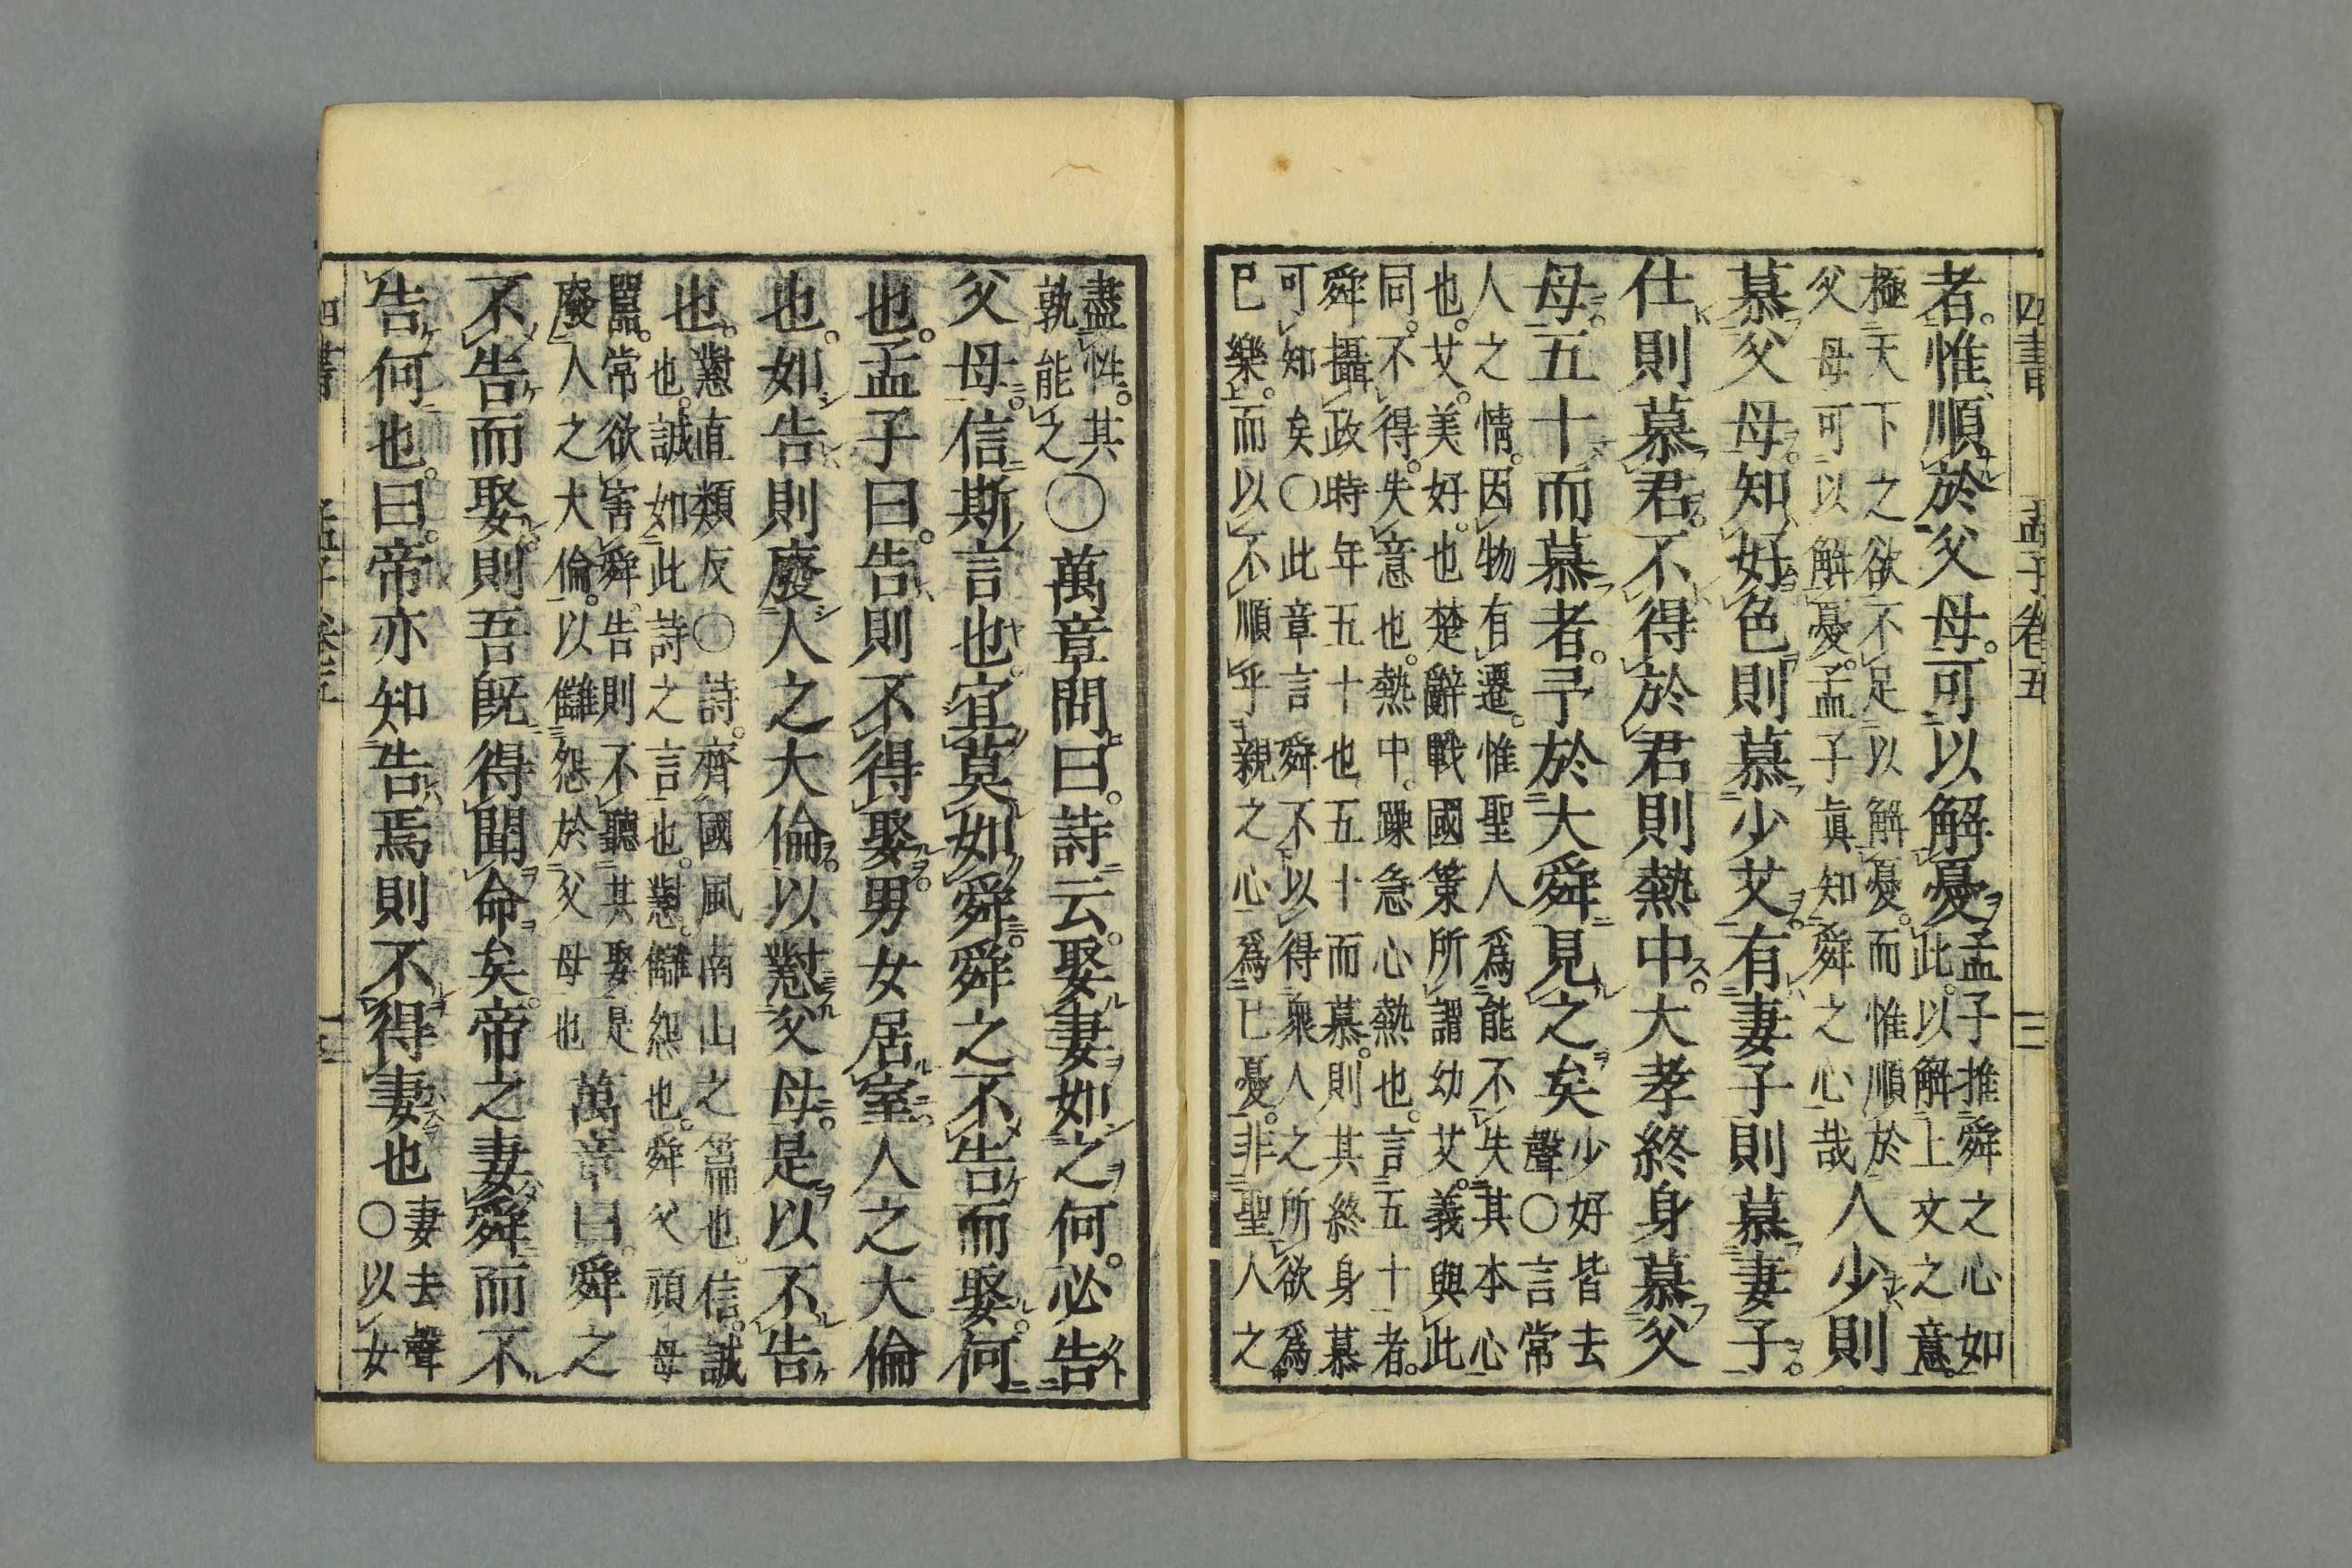 四書 孟子卷五 三
者。惟順於父母。可以解憂
孟子推舜之心如
此。以解上文之意。
極天下之欲不足以解憂。而惟順於
父母可以解憂。孟子眞知舜之心哉
人少則
慕父母。知好色則慕少艾。有妻子則慕妻子。
仕則慕君。不得於君則熱中。大孝終身慕父
母。五十而慕者。予於大舜見之矣
少好皆去
聲○言常
人之情。因物有遷。惟聖人爲能不失其本心
也。艾。美好。也楚辭戰國策所謂幼艾。義與此
同。不得。失意也。熱中。躁急心熱也。言五十者。
舜攝政時年五十也五十而慕。則其終身慕
可知矣○此章言舜不以得衆人之所欲爲
已樂。而以不順乎親之心爲已憂。非聖人之
盡性。其
孰能之
○萬章問曰。詩云。娶妻如之何。必告
父母。信斯言也。宜莫如舜。舜之不告而娶。何
也。孟子曰。告則不得娶。男女居室。人之大倫
也。如告則廢人之大倫。以懟父母。是以不告
也。
懟直類反○詩。齊國風南山之篇也。信。誠
也。誠如此詩之言也。懟。讎怨也。舜父頑母
嚚。常欲害舜。告則不聽其娶。是
廢人之大倫。以讎怨於父母也
萬章曰。舜之
不告而娶。則吾既得聞命矣。帝之妻舜而不
告何也。曰。帝亦知告焉則不得妻也
妻去聲
○以女
四書 孟子卷五